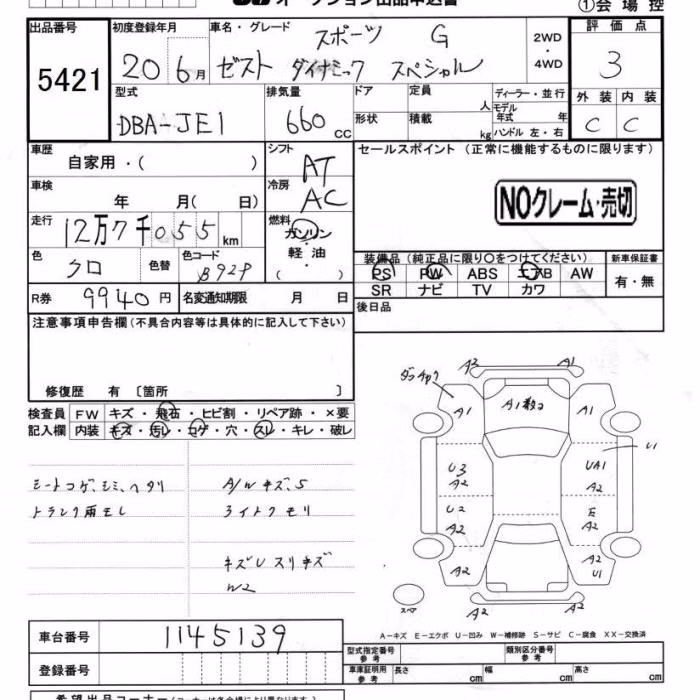 オークション出品申込書
①会場控
出品番号
5421
初度登録年月
20 6月
車名・グレード
スポーツ G
ゼスト ダイナミック スペシャル
2WD
・
4WD
評価点
3
型式
DBA-JE1
排気量
660 cc
ドア
形状
定員
人
積載
kg
ディーラー・並行
モデル年式 年
ハンドル 左・右
外装 内装
C C
車歴
自家用・( )
シフト
AT
セールスポイント (正常に機能するものに限ります)
NOクレーム・売切
車検
年 月( 日)
冷房
AC
走行
12万7千055km
燃料
ガソリン
・
軽油
・
( )
色
クロ
色替
色コード
B92P
装備品(純正品に限り○をつけてください)
新車保証書
PS PW ABS エアB AW
有・無
SR ナビ TV カワ
R券 9940円
名変通知期限 月 日
後日品
注意事項申告欄(不具合内容等は具体的に記入して下さい)
修復歴 有 〔箇所 〕
検査員
記入欄
FW キズ・飛石・ヒビ割・リペア跡・×要
内装 キズ・汚レ・コゲ・穴・スレ・キレ・破レ
シートコゲ、シミ、ヘタリ
トランク雨モレ
A/Wキズ、S
ライトクモリ
キズUスリキズ
W2
A2 A1
A1 A1
U1
U3
A2
UA1
A2
U2
A2
E
A2
A2
A2
U1
スペア
A2 A2
A-キズ E-エクボ U-凹み W-補修跡 S-サビ C-腐食 XX-交換済
車台番号
1145139
登録番号
型式指定番号
参考
類別区分番号
参考
車庫証明用
参考
長さ cm 幅 cm 高さ cm
希望出品コーナー